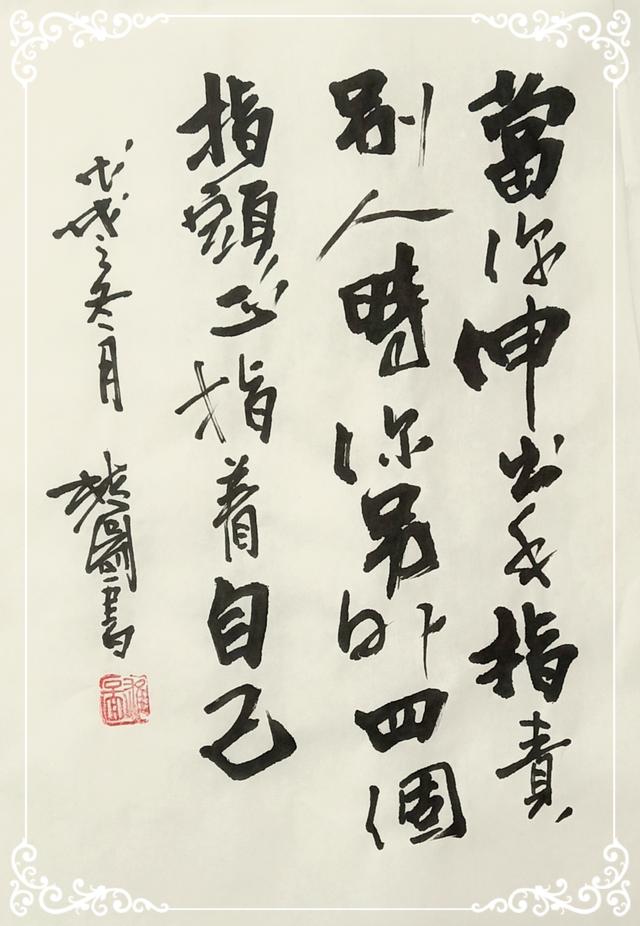 當你伸出手指責
別人時你另外四個
指頭正指着自己
戊戌之冬月 圖書